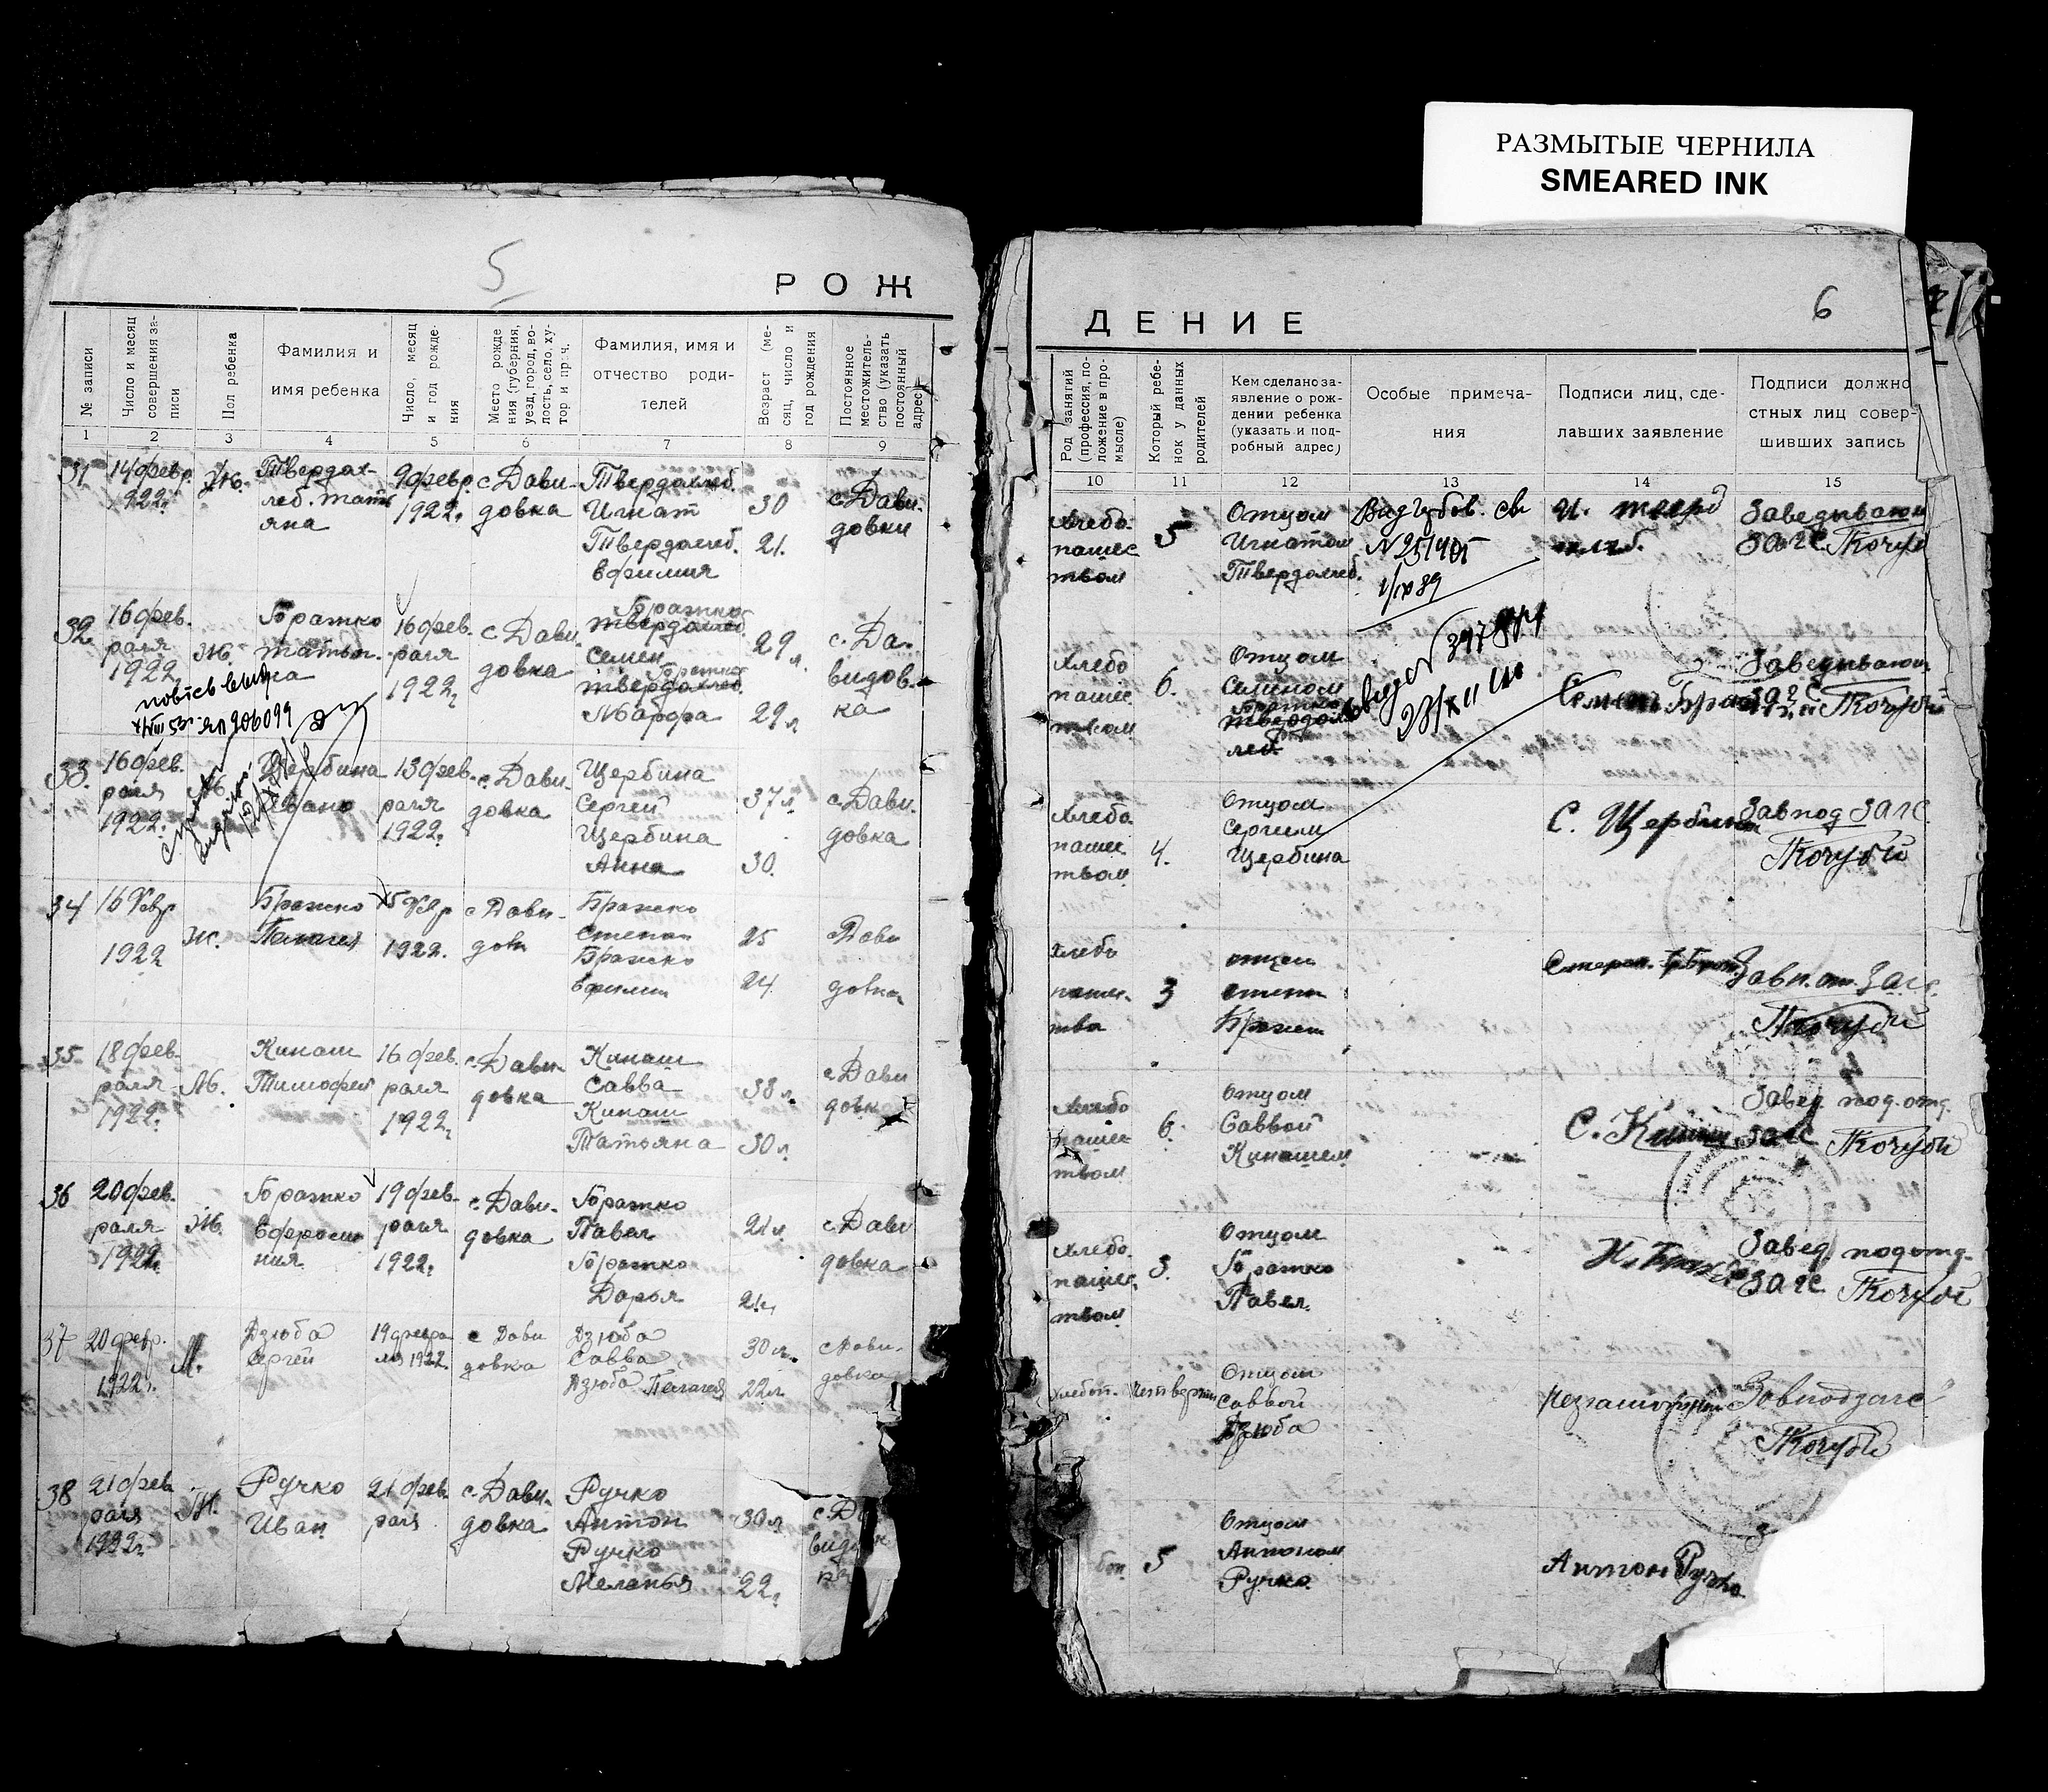 РАЗМЫТЫЕ ЧЕРНИЛА
SMEARED INK
5
РОЖ
№ записи
Число и месяц совершения за-
писи
Пол ребенка
Фамилия и
имя ребенка
Число, месяц
и год рожде-
ния
Место рожде
ния (губерния,
уезд, город, во-
лость, село, ху-
тор и проч.
Фамилия, имя и
отчество роди-
телей
Возраст (ме-
сяц, число и
год рождения
Постоянное
местожитель-
ство (указать
постоянный
адрес)
1 2 3 4 5 6 7 8 9
31
14 февр.
1922г.
Ж.
Твердох-
леб. Тать
яна
9 февр.
1922г.
с Дави-
довка
Твердохлеб.
Игнат
Твердохлеб.
Ефимия
30
21.
с. Дави-
довки
32
16 фев.
раля
1922
Ж.
Бражко
Татья-
на
16 фев.
раля
1922г.
с Дави
довка
Бражко
Твердохлеб.
Семен
Бражко
Твердохлеб.
Марфа
29 л.
29 л
с. Да-
видов-
ка
33.
16 фев.
раля
1922г.
М.
Щербина
Ивано
13 фев.
раля
1922г.
с. Дави.
довка
Щербина
Сергей
Щербина
Анна
37 л.
30.
с Дави.
довка
34
16 Февр
1922
Ж.
Бражко
Пелагея
15 Февр
1922.
с Дави-
довк
Бражко
Степан
Бражко
Ефимия
25
24
с Дави
довка
35
18 фев-
раля
1922г.
М.
Кинаш
Тимофей
16 фев.
раля
1922г
с. Дави-
довка
Кинаш
Савва
Кинаш
Татьяна
38 л.
30 л.
с Дави
довка
36
20 фев.
раля
1922г.
Ж.
Бражко
Ефроси
ния
19 фев-
раля
1922г.
с. Дави-
довка
Бражко
Павел
Бражко
Дарья
21 л.
21 л,
с. Дави
довка
37
20 февр.
1922г.
М.
Дзюба
Сергей
19 февра
ля 1922.
с Дави
довка
Дзюба
Савва
Дзюба Пелагея
30 л.
22 л.
с Дави.
довка
38
21 фев
раля
1922г.
Ж.
Ручко
Иван
21 фев.
раля
с. Дави-
довка
Ручко
Антон
Ручко
Меланья
30 л
22 г.
6
ДЕНИЕ
Род занятий
(профессия, по-
ложение в про-
мысле)
Который ребе-
нок у данных
родителей
Кем сделано за-
явление о рож-
дении ребенка
(указать и под-
робный адрес)
Особые примеча-
ния
Подписи лиц, сде-
лавших заявление
Подписи должно
стных лиц совер-
шивших запись
10 11 12 13 14 15
Хлебо.
пашес
твом
5
Отцом
Игнатом
Твердохлеб.
1/IX 89
Заведывающ
ЗАГС. Кочубей
Хлебо
пашес
твом
6.
Отцом
Семеном
Бражко
Твердох
леб
23/XII
Заведывающ
ЗАГС Кочубей
Хлебо
пашес
твом
4.
Отцом
Сергеем
Щербина
С. Щербина
Завпод ЗАГС.
Кочубей
Хлебо
пашес-
тва
3
отцем
Степа
Бражк
Кочубей
Хлебо
пашес
твом
6.
Отцом
Саввой
Кинашем
С. Кинаш
Завед. под. отд.
ЗАГС Кочубей
Хлебо.
пашес,
твом
3.
Отцом
Бражко
Павел.
Завед. подотд.
ЗАГС Кочубей
Хлебоп.
Четверты
Отцом
Саввой
Дзюба
Неграмотный
Завподзагс
Кочубей
5
Отцом
Антоном
Ручко.
Антон Ручко